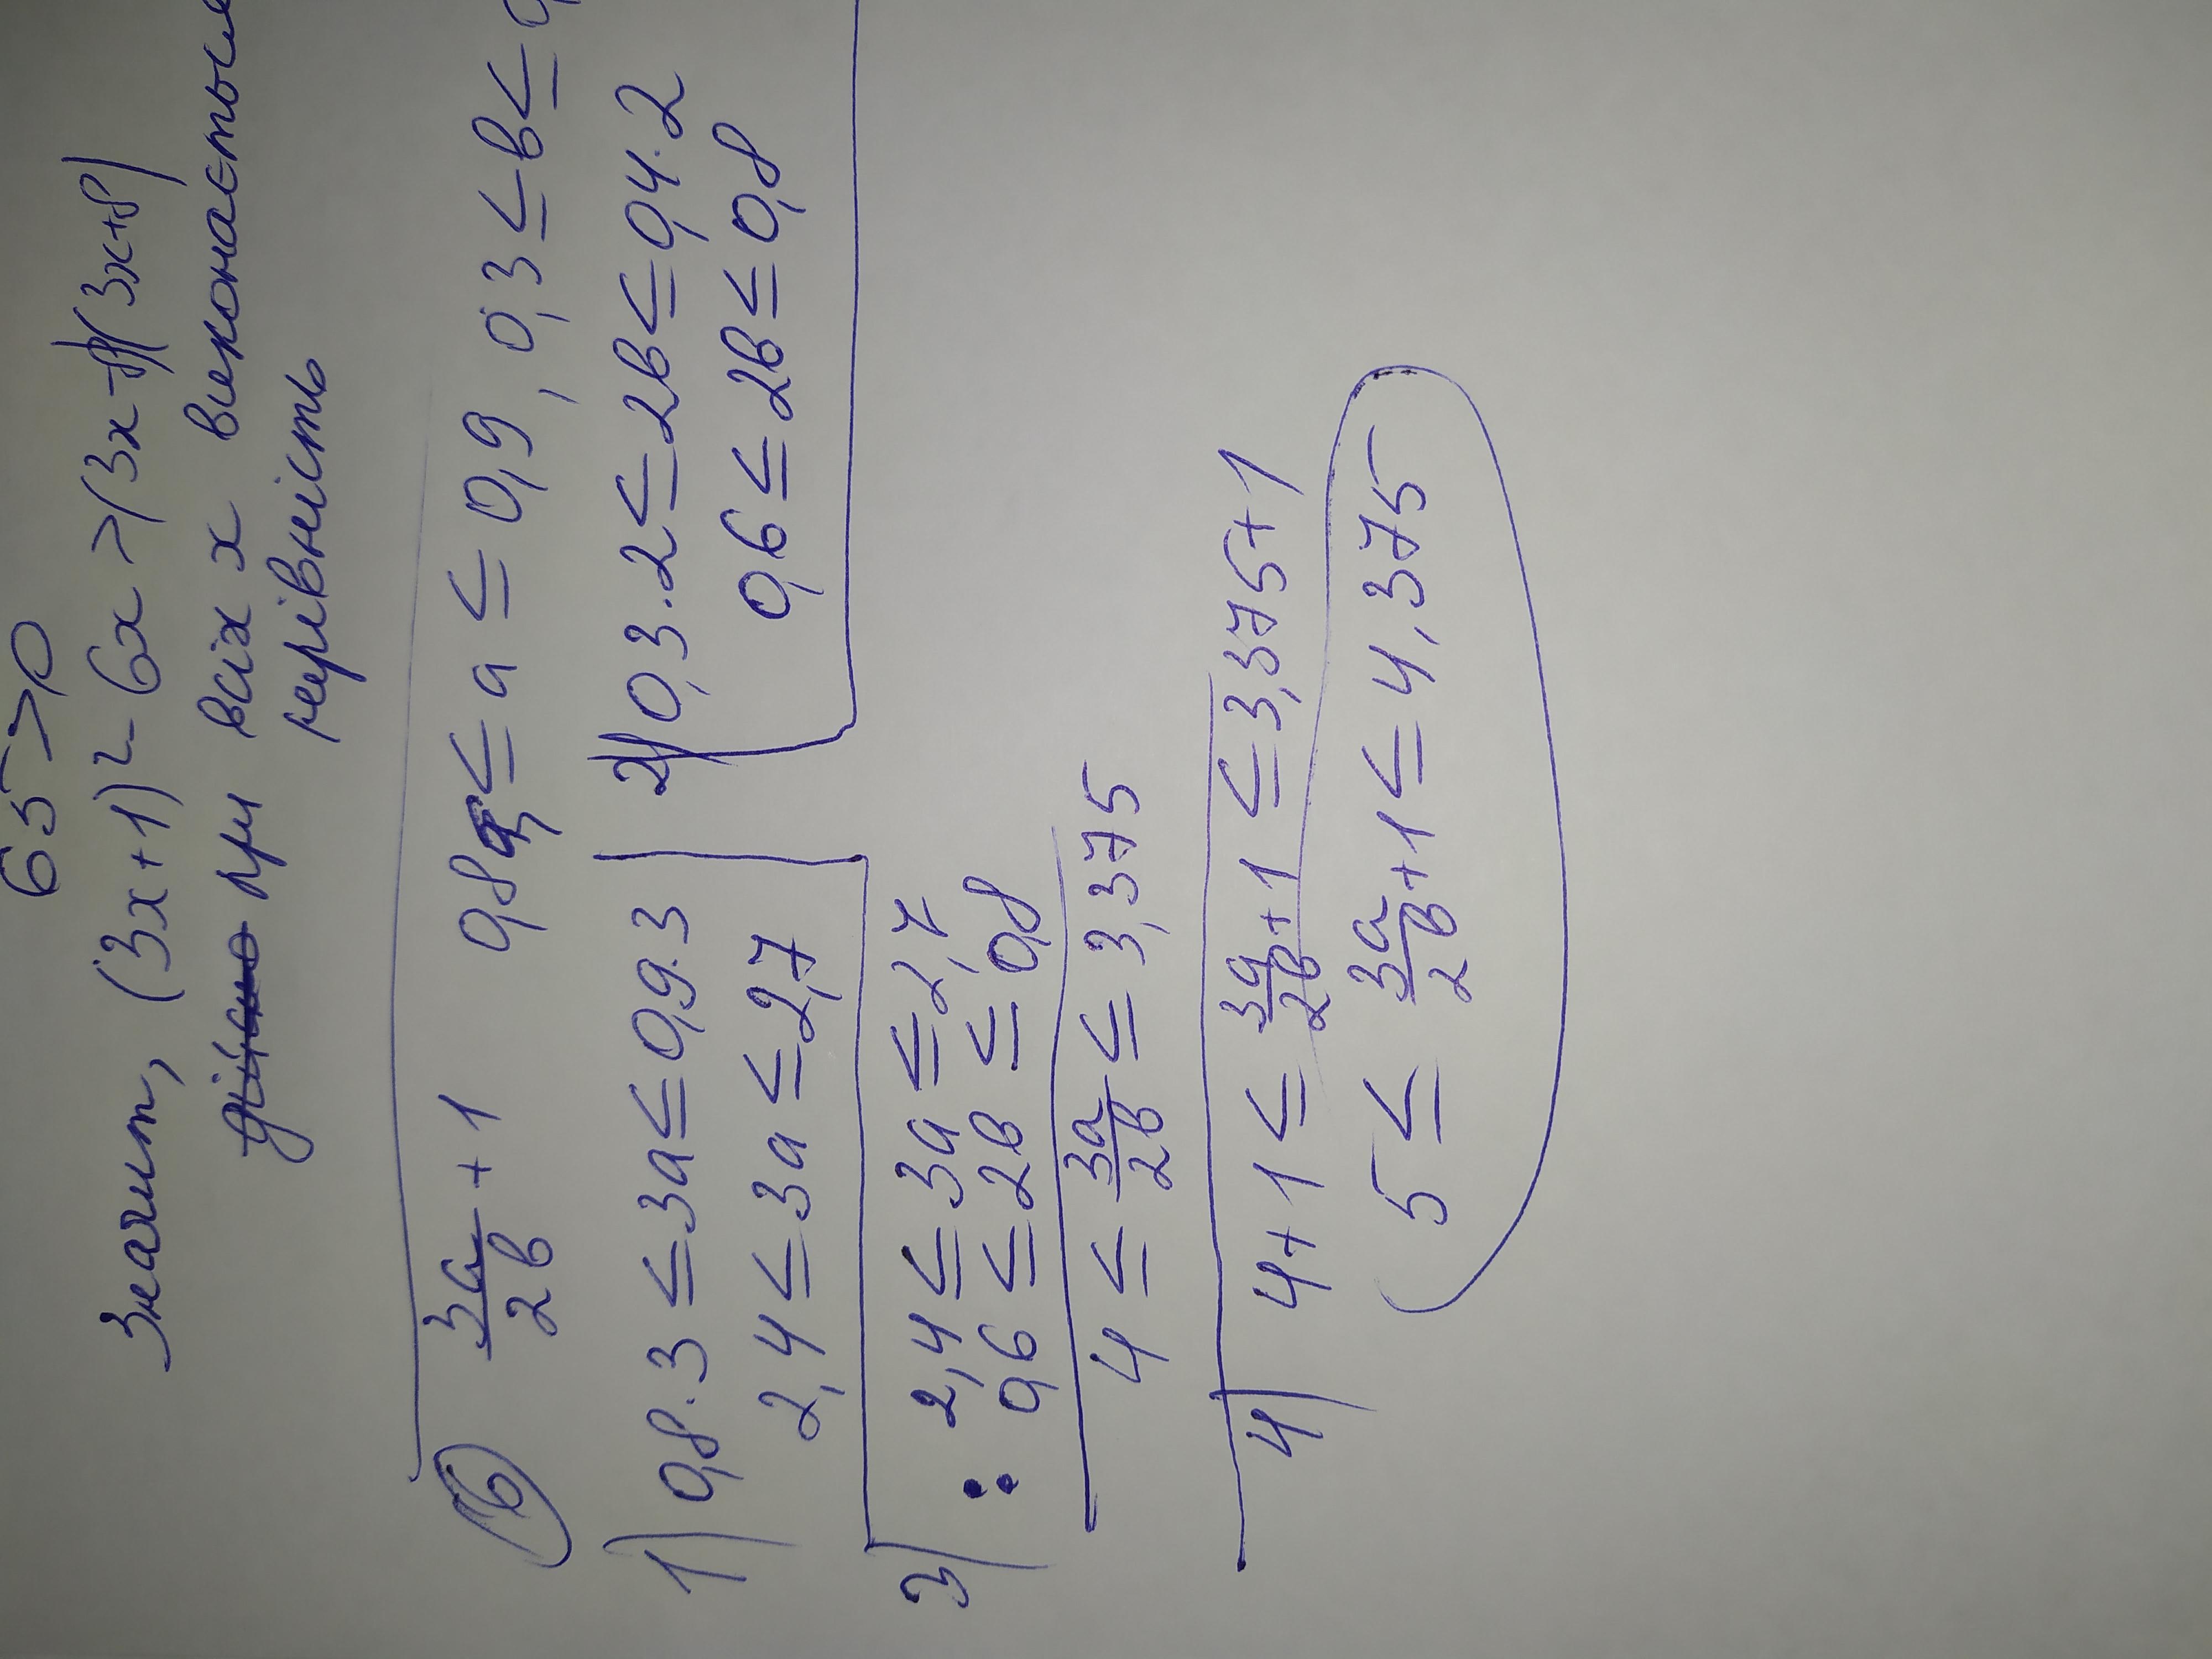 65 > 0
Значит, (3x+1)² - 6x > (3x-8)(3x+8)
при всіх x виконається
нерівність
6) 3a/2b + 1 0,8 ≤ a ≤ 0,9, 0,3 ≤ b ≤ 0,
1) 0,8·3 ≤ 3a ≤ 0,9·3
2,4 ≤ 3a ≤ 2,7
2) 0,3·2 ≤ 2b ≤ 0,4·2
0,6 ≤ 2b ≤ 0,8
3) 2,4 ≤ 3a ≤ 2,7
: 0,6 ≤ 2b ≤ 0,8
4 ≤ 3a/2b ≤ 3,375
4) 4+1 ≤ 3a/2b + 1 ≤ 3,375+1
5 ≤ 3a/2b + 1 ≤ 4,375